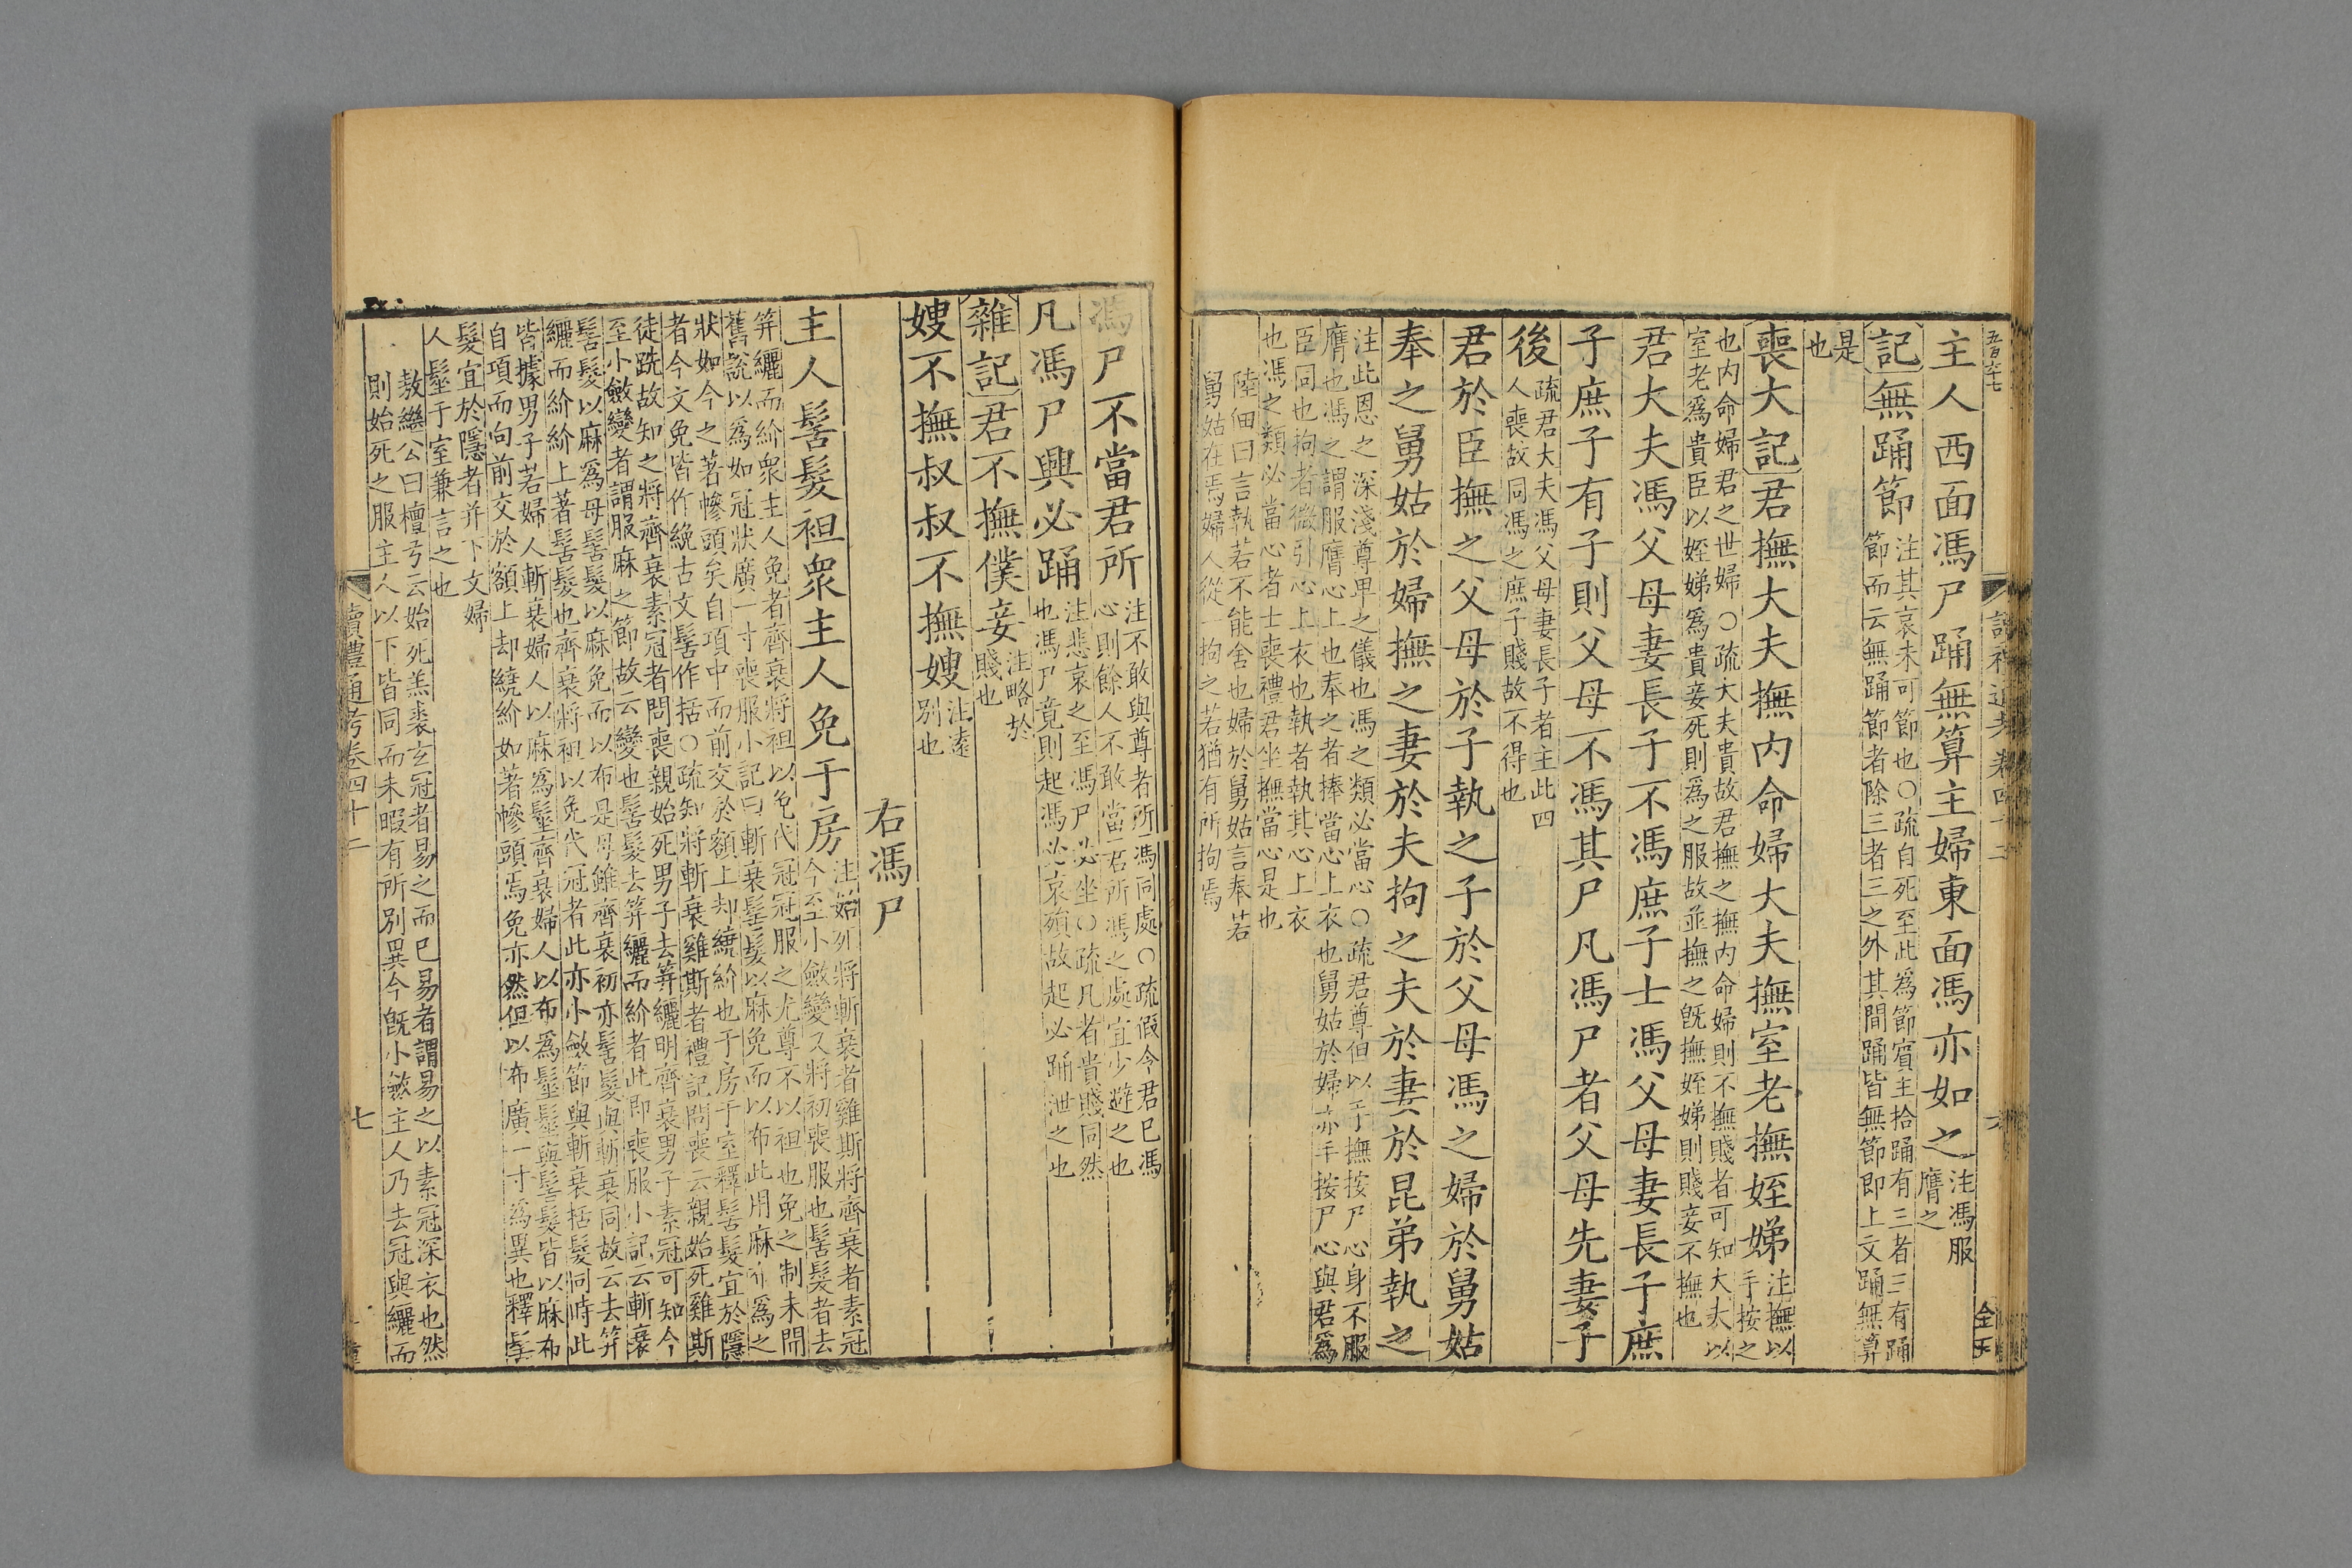 五百六十七
主人西面馮尸踊無算主婦東面馮亦如之注馮服
膺之
記無踊節注其哀未可節也○疏自死至此為節賓主拾踊有三者三有踊
節而云無踊節者除三者三之外其間踊皆無節即上文踊無算
是
也
喪大記君撫大夫撫内命婦大夫撫室老撫姪娣注撫以
手按之
也内命婦君之世婦○疏大夫貴故君撫之撫内命婦則不撫賤者可知大夫以
室老爲貴臣以姪娣爲貴妾死則爲之服故並撫之既撫姪娣則賤妾不撫也
君大夫馮父母妻長子不馮庶子士馮父母妻長子庶
子庶子有子則父母不馮其尸凡馮尸者父母先妻子
後疏君大夫馮父母妻長子者主此四
人喪故同馮之庶子賤故不得也
君於臣撫之父母於子執之子於父母馮之婦於舅姑
奉之舅姑於婦撫之妻於夫拘之夫於妻於昆弟執之
注此恩之深淺尊卑之儀也馮之類必當心○疏君尊但以手撫按尸心身不服
膺也馮之謂服膺心上也奉之者捧當心上衣也舅姑於婦亦手按尸心與君爲
臣同也拘者微引心上衣也執者執其心上衣
也馮之類必當心者士喪禮君坐撫當心是也
陸佃曰言執若不能舍也婦於舅姑言奉若
舅姑在焉婦人從一拘之若猶有所拘焉
馮尸不當君所注不敢與尊者所馮同處○疏假令君已馮
心則餘人不敢當君所馮之處宜少避之也
凡馮尸興必踊注悲哀之至馮尸必坐○疏凡者貴賤同然
也馮尸竟則起馮必哀殞故起必踊泄之也
雜記君不撫僕妾注略於
賤也
嫂不撫叔叔不撫嫂注遠
別也
右馮尸
主人髺髮袒衆主人免于房注始死將斬衰者雞斯將齊衰者素冠
今至小斂變又將初喪服也髺髮者去
笄纚而紒衆主人免者齊衰將袒以免代冠冠服之尤尊不以袒也免之制未聞
舊説以爲如冠狀廣一寸喪服小記曰斬衰髺髮以麻免而以布此用麻布爲之
狀如今之著幓頭矣自項中而前交於額上却繞紒也于房于室釋髺髮宜於隱
者今文免皆作絻古文髺作括○疏知將斬衰雞斯者禮記問喪云親始死雞斯
徒跣故知之將齊衰素冠者問喪親始死男子去笄纚明齊衰男子素冠可知今
至小斂變者謂服麻之節故云變也髺髮去笄纚而紒者此即喪服小記云斬衰
髺髮以麻爲母髺髮以麻免而以布是母雖齊衰初亦髺髮與斬衰同故云去笄
纚而紒紒上著髺髮也齊衰將袒以免代冠者此亦小斂節與斬衰括髮同時此
皆據男子若婦人斬衰婦人以麻爲髽齊衰婦人以布爲髽髽與髺髮皆以麻布
自項而向前交於額上却繞紒如著幓頭焉免亦然但以布廣一寸爲異也釋髺
髮宜於隱者并下文婦
人髽于室兼言之也
敖繼公曰檀弓云始死羔裘玄冠者易之而已易者謂易之以素冠深衣也然
則始死之服主人以下皆同而未暇有所別異今既小斂主人乃去冠與纚而
讀禮通考卷四十二
七